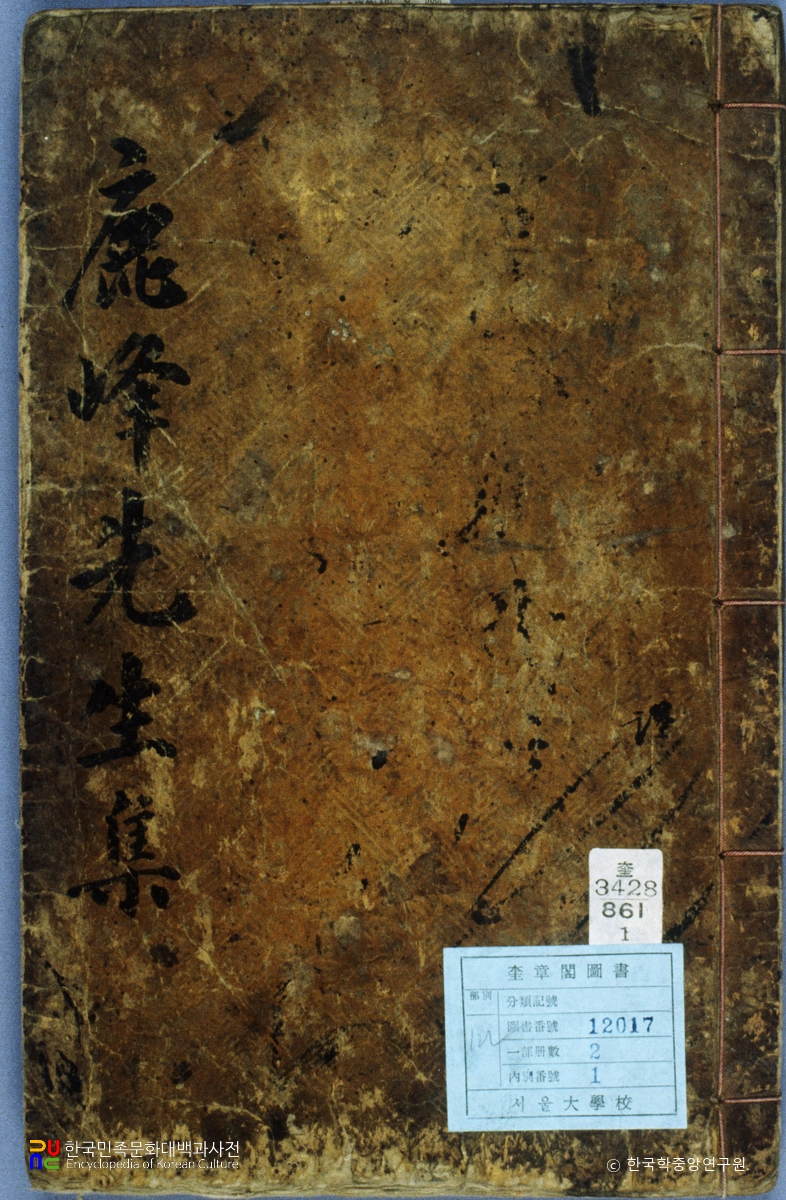 鹿峰先生集
奎
3428
861
1
奎章閣圖書
部別
分類記號
圖書番號 12017
一部册數 2
內別番號 1
서울大學校
한국민족문화대백과사전
Encyclopedia of Korean Culture
© 한국학중앙연구원